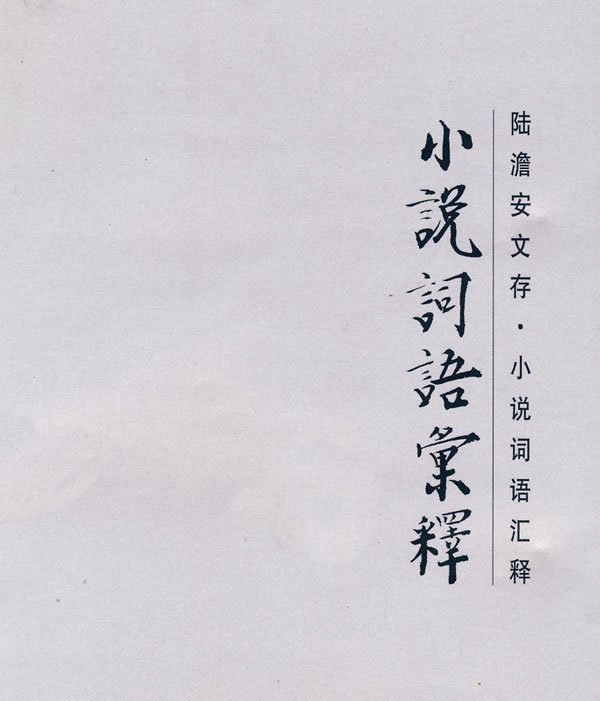 陆澹安文存·小说词语汇释
小說詞語彙釋